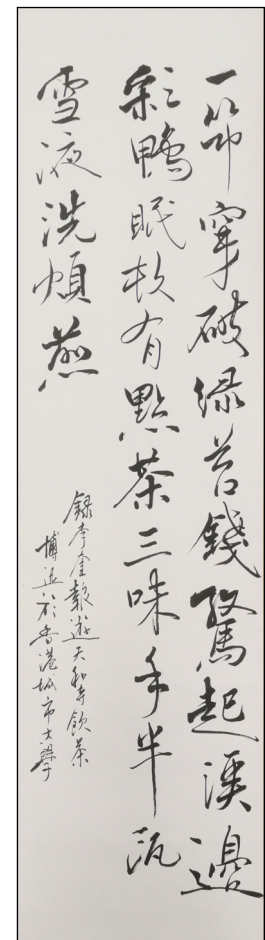 一筇穿破綠苔錢驚起溪邊
彩鴨眠賴有點茶三味手半甌
雪液洗煩煎
錄李奎報遊天和寺飲茶
博 於香港城市大學